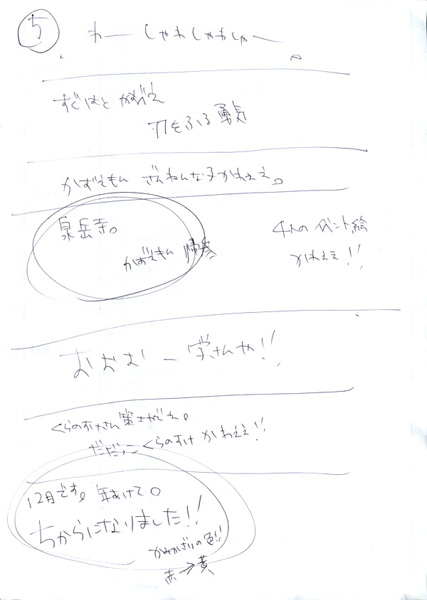 5
わー しゃわしゃわしゃー
すぐはと かずえ
刀をふる勇気
かずえもん ざんねんな子かわええ。
泉岳寺。
かずえもん 帰参
4人の イベント絵
かわええ!!
おおおー 栄さんや!!
くらのすけさん
だだっこくらのすけ かわええ!!
12月です。年あけて。
ちからになりました!!
かみかざりの色!!
赤→黄